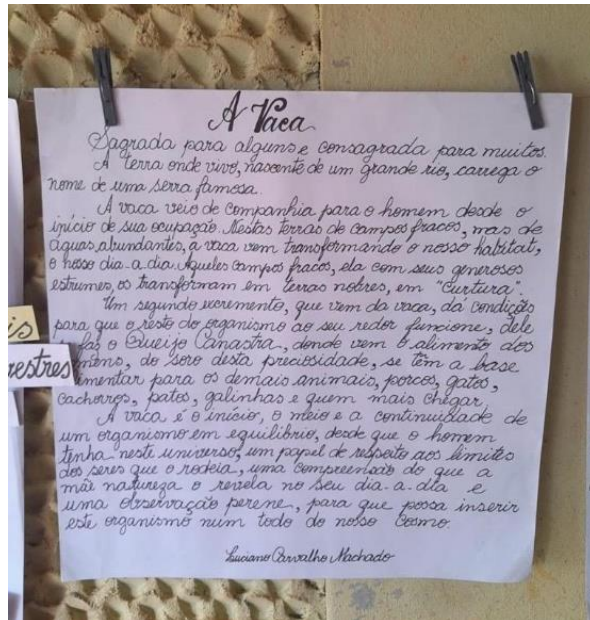 A Vaca
Sagrada para alguns e consagrada para muitos.
A terra onde vivo, nascente de um grande rio, carrega o
nome de uma serra famosa.
A vaca veio de companhia para o homem desde o
início de sua ocupação. Nestas terras de campos fracos, mas de
águas abundantes, a vaca vem transformando o nosso habitat,
o nosso dia-a-dia. Aqueles campos fracos, ela com seus generosos
estrumes, os transformam em terras nobres, em "Curtura".
Um segundo excremento, que vem da vaca, dá condição
para que o resto do organismo ao seu redor funcione, dele
o Queijo Canastra, donde vem o alimento dos
do soro desta preciosidade, se têm a base
para os demais animais, porcos, gatos,
cachorros, patos, galinhas e quem mais chegar.
A vaca é o início, o meio e a continuidade de
um organismo em equilíbrio, desde que o homem
tenha neste universo, um papel de respeito aos limites
dos seres que o rodeia, uma compreensão do que a
mãe natureza o revela no seu dia-a-dia e
uma observação perene, para que possa inserir
este organismo num todo do nosso Cosmo.
Luciano Carvalho Machado
is
restres